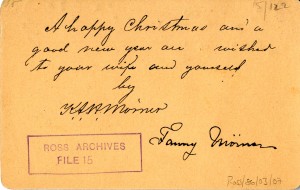 A happy Christmas and a
good new year are wished
to your wife and yourself
by
K.A.H. Mörner
Fanny Mörner
ROSS ARCHIVES
FILE 15